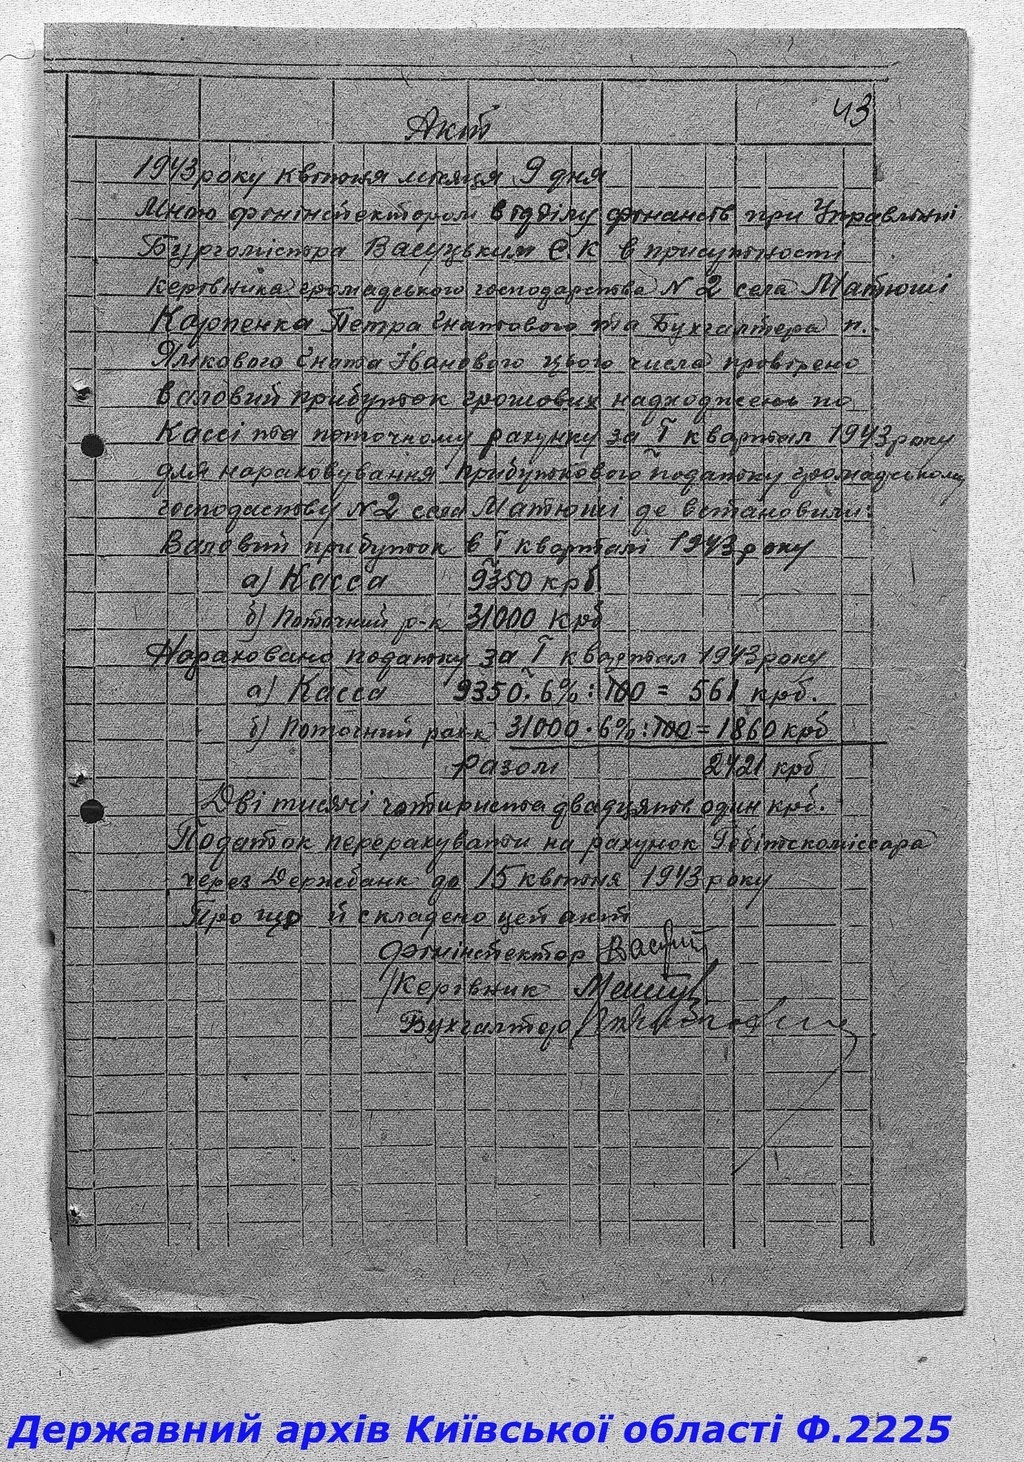 43
Акт
1943 року квітня місяця 9 дня
Мною фінінспектором відділу фінансів при Управлінні
Бургомістра Васуцьким Є.К в присутності
керівника громадського господарства N 2 села Матюші
Карпенка Петра Гнатового та Бухгалтера п.
Ямкового Гната Іванового цього числа провірено
валовий прибуток грошових надходжень по
Кассі та поточному рахунку за I квартал 1943 року
для нараховування прибуткового податку громадському
господаству N 2 села Матюші де встановили:
Валовий прибуток в I кварталі 1943 року
а) Касса 9350 крб
б) Поточний р-к 31000 крб
Нараховано податку за I квартал 1943 року
а) Касса 9350 · 6% : 100 = 561 крб.
б) Поточний рах-к 31000 · 6% : 100 = 1860 крб
разом 2421 крб
Дві тисячі чотириста двадцять один крб.
Податок перерахувати на рахунок Гебітскоміссара
через Держбанк до 15 квітня 1943 року
Про що й складено цей акт
Фінінспектор
Керівник
Бухгалтер
Державний архів Київської області Ф.2225